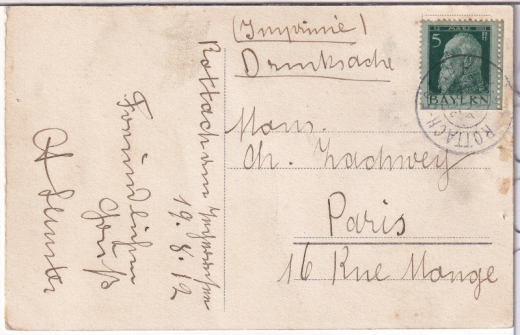 (Imprimé)
Drucksache
5
BAYERN
ROTTACH
Mons.
Ch. Zachwey
Paris
16 Rue Monge
Rottach am
19.8.12
Freundlichen
Gruß